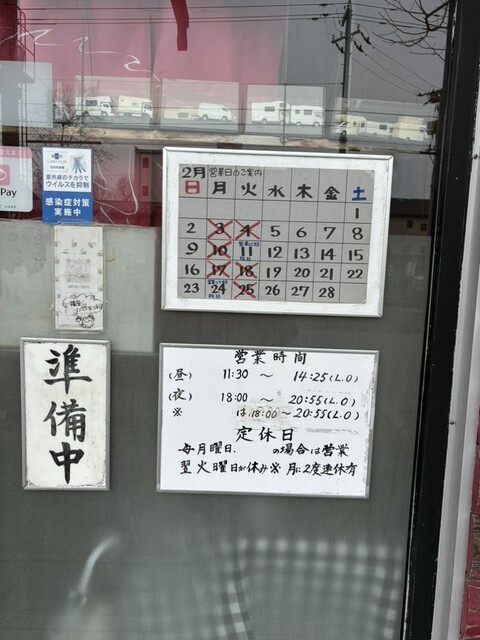 Pay
紫外線のチカラで
ウイルスを抑制
感染症対策
実施中
2月 営業日のご案内
日 月 火 水 木 金 土
1
2 3 4 5 6 7 8
9 10 11 12 13 14 15
16 17 18 19 20 21 22
23 24 25 26 27 28
準備中
営業時間
(昼) 11:30 ～ 14:25(L.O)
(夜) 18:00 ～ 20:55(L.O)
※ は、18:00～20:55(L.O)
定休日
毎月曜日. の場合は営業
翌火曜日が休み※ 月に2度連休有